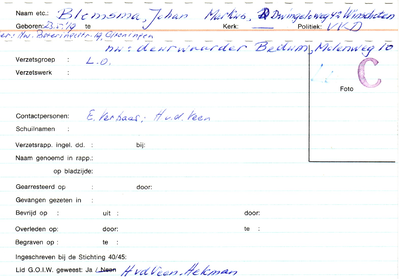 Naam etc.: Blemsma, Johan Markus, Dwingeloweg 42 Winschoten
Geboren: te Kerk: — Politiek: VVD
nu: deurwaarder Bedum, Molenweg 10
Verzetsgroep : L.O.
Verzetswerk :
C
Foto
Contactpersonen: E. Verhaas; H.v.d. Veen
Schuilnamen :
Verzetsrapp. ingel. dd. : bij:
Naam genoemd in rapp.:
op bladzijde:
Gearresteerd op : door:
Gevangen gezeten in :
Bevrijd op : uit : door:
Overleden op: door: te :
Begraven op : te :
Ingeschreven bij de Stichting 40/45:
Lid G.O.I.W. geweest: Ja / Neen H vd Veen, Hekman